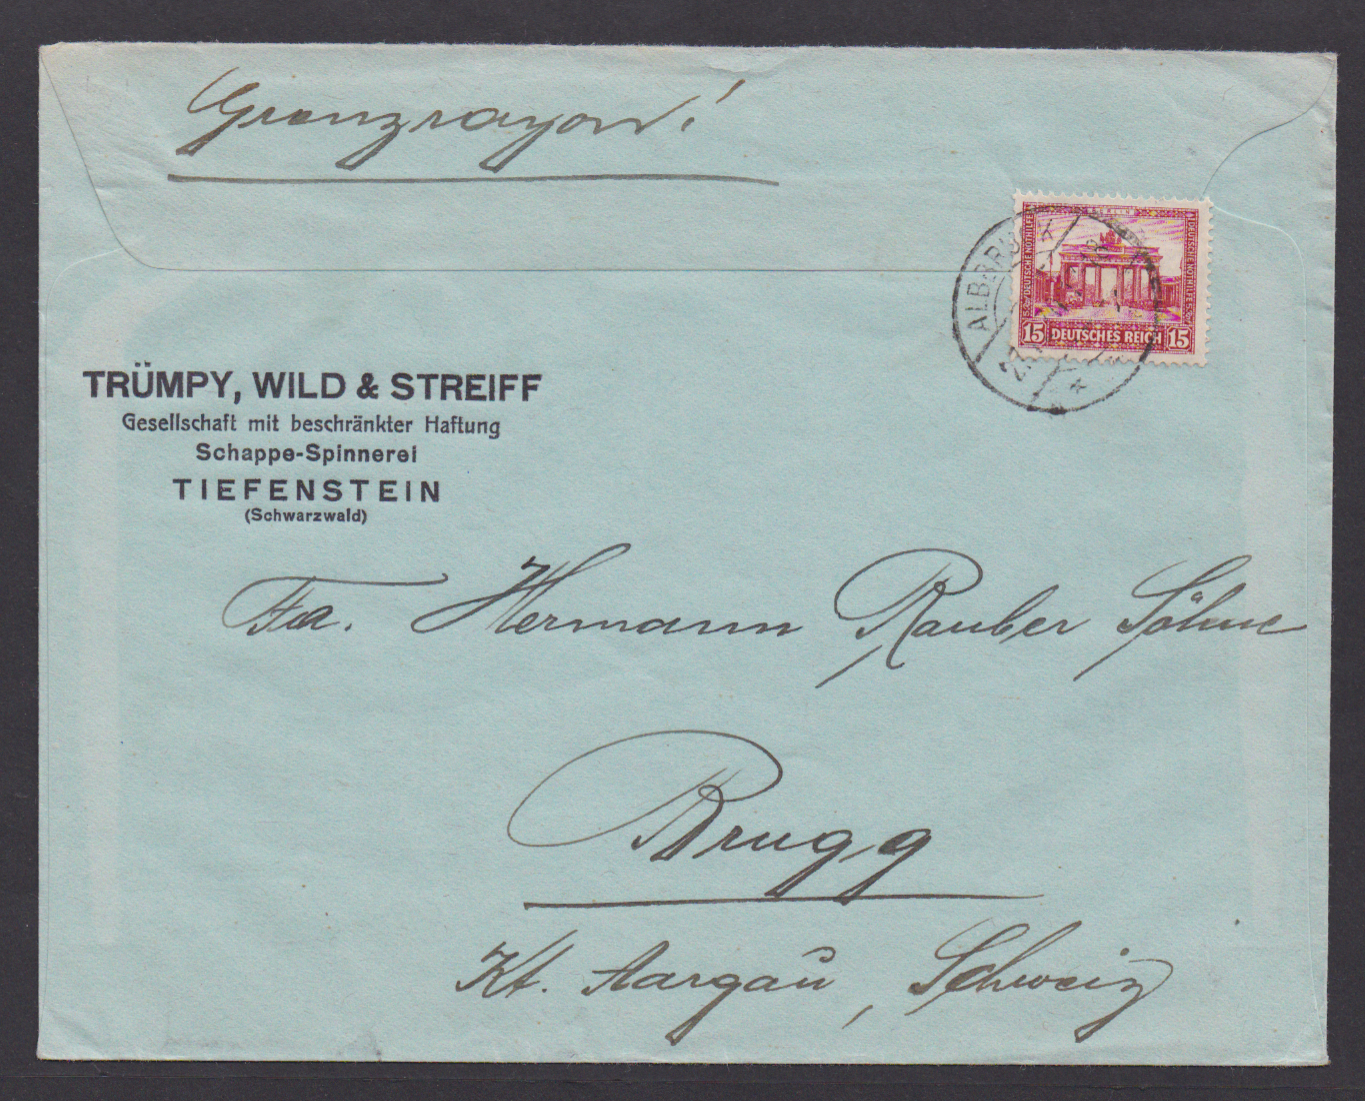 Grenzrayon!
BERLIN
DEUTSCHE NOTHILFE
DEUTSCHE NOTHILFE
15 DEUTSCHES REICH 15
ALBBRUCK
TRÜMPY, WILD & STREIFF
Gesellschaft mit beschränkter Haftung
Schappe-Spinnerei
TIEFENSTEIN
(Schwarzwald)
Fa. Hermann Rauber Söhne
Brugg
Kt. Aargau, Schweiz